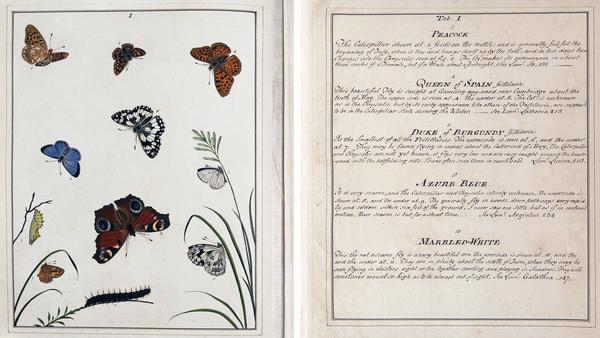 1
Tab. 1
PEACOCK
The Caterpillar shewn at 1. feeds on the nettle; and is generally full fed the
beginning of July, when it ties and hangs itself up by the tail; and in two days time
Changes into the Chrysalis seen at fig. 2. The fly makes its appearance in about
three weeks if a Female, but if a Male about a fortnight, see Linn. Io, 131.
4
QUEEN of SPAIN fritillaria.
This beautiful Fly is caught at Gamlingay-wood near Cambridge about the
tenth of May. The upper side is seen at 4. the under at 5. The Cat. is unknown
as is the Chrysalis but by its early appearance like others of the Fritillaria, are supposed
to be in the Caterpillar state during the Winter. See Linn. Lathonia, 213
6
DUKE of BURGUNDY fritillaria.
Is the Smallest of all the Fritillarias. The upperside is seen at 6, and the under
at 7. They may be found flying in woods about the latter end of May, The Caterpillar
and Chrysalis are not yet known, it flys very low and are easy caught among the brush
wood with the batfolding nets. I have often seen them in Linn. Lucina, 203.
8
AZURE BLUE
Is very scarce, and the Caterpillar and chrysalis intirely unknown, The upperside is
shewn at 8, and the under at 9. The generally fly in woods, down pathways very rapid
ly and seldom within six feet of the ground, I never saw one settle, but as if in continual
motion, their season is but for a short time. See Linn. Argiolus, 234
10
MARBLED-WHITE
This tho' not a scarce fly is a very beautiful one the upperside is shewn at 10. and the
and the under at 11. They are in plenty about the 20th of June, when they may be
seen flying in clusters eight or ten together sporting and playing in Meadows, They will
sometimes mount so high as to be almost out of sight. See Linn. Galathea, 147.